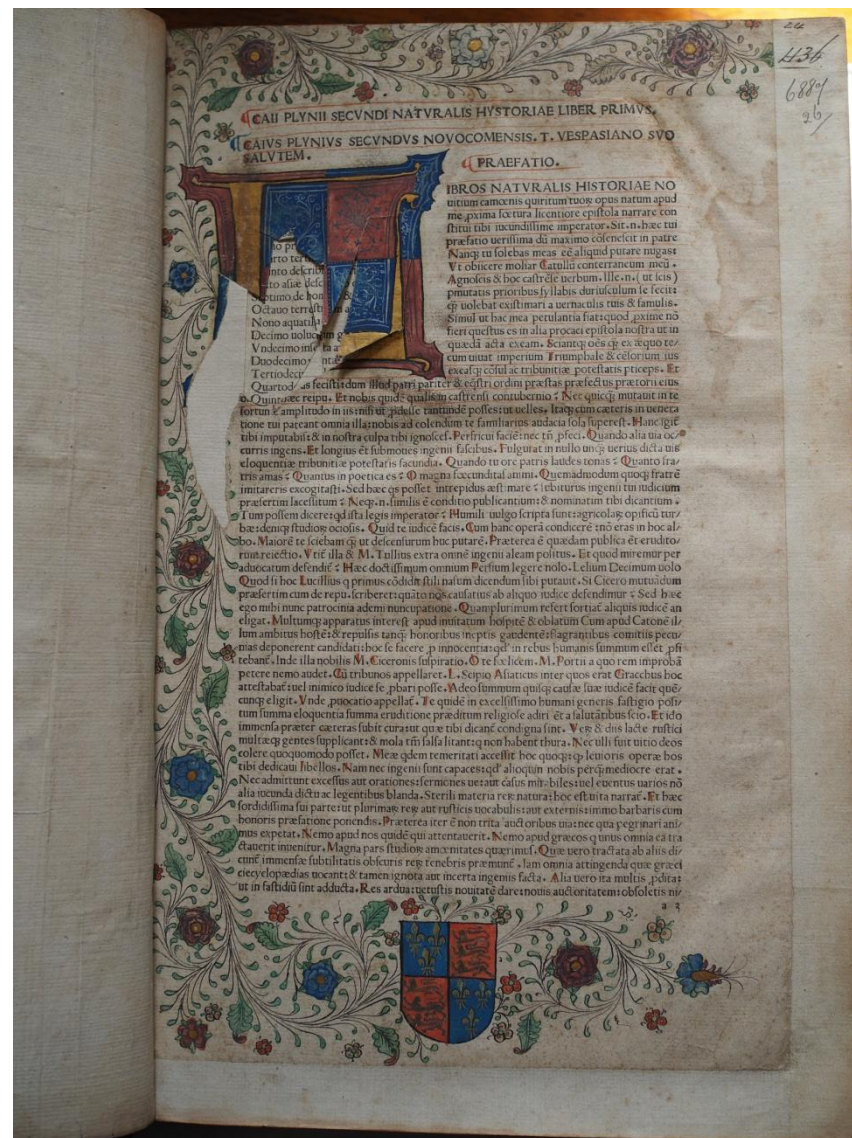 24
436
6889
26/
CAII PLYNII SECVNDI NATVRALIS HYSTORIAE LIBER PRIMVS.
CAIVS PLYNIVS SECVNDVS NOVOCOMENSIS. T. VESPASIANO SVO
SALVTEM. PRAEFATIO.
IBROS NATVRALIS HISTORIAE NO
uitium camœnis quiritum tuoꝝ opus natum apud
me ꝓxima fœtura licentiore epistola narrare con
stitui tibi iucundissime imperator. Sit.n.hæc tui
præfatio uerissima dū maximo cōsenescit in patre
Nanqꝫ tu solebas meas eē aliquid putare nugas:
Vt obiicere moliar Catullū conterraneum meū.
Agnoscis & hoc castrēse uerbum. Ille.n. ut scis)
pmutatis prioribus syllabis duriusculum se fecit:
ꝙ uolebat existimari a uernaculis tuis & famulis.
Simul ut hac mea petulantia fiat: quod ꝓxime nō
fieri questus es in alia procaci epistola nostra ut in
quædā acta exeam. Sciantqꝫ oēs ꝙ ex æquo te/
cum uiuat imperium Triumphale & cēsorium ius
exeasqꝫ cōsul ac tribunitiæ potestatis pticeps. Et
pr
arto ter
into describ
to asiæ desc
ptimo de hon &
Octauo terrest a
Nono aquatil
Decimo uoluc
Vndecimo inse a
Duodecimo
Tertiodec
Quartod as fecisti: dum illud patri pariter & eqstri ordini præstas præfectus prætorii eius
o. Quinto ec reipu. Et nobis quidē qualis in castrensi contubernio? Nec quicqꝫ mutauit in te
fortun amplitudo in iis: nisi ut ꝓdesse tantundē posses: ut uelles. Itaqꝫ cum cæteris in uenera
tione tui pateant omnia illa: nobis ad colendum te familiarius audacia sola superest. Hanc igit̄
tibi imputabis: & in nostra culpa tibi ignosces. Perfricui faciē: nec tn̄ ꝓfeci. Quando alia uia oc/
curris ingens. Et longius ēt submoues ingenii fascibus. Fulgurat in nullo unqꝫ uerius dicta uis
eloquentiæ tribunitiæ potestatis facundia. Quando tu ore patris laudes tonas? Quanto fra/
tris amas? Quantus in poetica es? O magna fœcunditas animi. Quemadmodum quoqꝫ fratrē
imitareris excogitasti. Sed hæc qs posset intrepidus æstimare? subiturus ingenii tui iudicium
præsertim lacessitum? Neqꝫ.n. similis ē conditio publicantum: & nominatim tibi dicantium.
Tum possem dicere: qd ista legis imperator? Humili uulgo scripta sunt: agricolaꝝ opificū tur/
bæ: deniqꝫ studioꝝ ociosis. Quid te iudicē facis. Cum hanc operā condicerē: nō eras in hoc al/
bo. Maiorē te sciebam ꝙ ut descensurum huc putarē. Præterea ē quædam publica ēt erudito/
rum reiectio. Vtit̄ illa & M. Tullius extra omnē ingenii aleam positus. Et quod miremur per
aduocatum defendit̄? Hæc doctissimum omnium Persium legere nolo. Lelium Decimum uolo
Quod si hoc Lucillius q primus cōdidit stili nasum dicendum sibi putauit. Si Cicero mutuādum
præsertim cum de repu. scriberet: quāto nos causatius ab aliquo iudice defendimur? Sed hæc
ego mihi nunc patrocinia ademi nuncupatione. Quamplurimum refert sortiat̄ aliquis iudicē an
eligat. Multumqꝫ apparatus interest apud inuitatum hospitē & oblatum Cum apud Catonē il/
lum ambitus hostē: & repulsis tanqꝫ honoribus ineptis gaudentē: flagrantibus comitiis pecu
nias deponerent candidati: hoc se facere ꝓ innocentia: qd' in rebus humanis summum esset ꝓfi
tebant̄. Inde illa nobilis M. Ciceronis suspiratio. O te fœlicem. M. Portii a quo rem improbā
petere nemo audet. Cū tribunos appellaret. L. Scipio Asiaticus inter quos erat Gracchus hoc
attestabat̄: uel inimico iudice se ꝓbari posse. Adeo summum quisqꝫ causæ suæ iudicē facit quē/
cunqꝫ eligit. Vnde ꝓuocatio appellat̄. Te quidē in excelsissimo humani generis fastigio posi/
tum summa eloquentia summa eruditione præditum religiose adiri ēt a salutātibus scio. Et ido
immensa præter cæteras subit cura: ut quæ tibi dicant̄ condigna sint. Veꝝ & diis lacte rustici
multæqꝫ gentes supplicant: & mola tm̄ salsa litant: q non habent thura. Nec ulli fuit uitio deos
colere quoquomodo posset. Meæ qdem temeritati accessit hoc quoqꝫ: ꝙ leuioris operæ hos
tibi dedicaui libellos. Nam nec ingenii sunt capaces: qd' alioquin nobis perqꝫ mediocre erat.
Nec admittunt excessus aut orationes: sermones ue: aut casus mirabiles: uel euentus uarios nō
alia iucunda dictu ac legentibus blanda. Sterili materia reꝝ natura: hoc est uita narrat̄. Et hæc
sordidissima sui parte: ut plurimaꝝ reꝝ aut rusticis uocabulis: aut externis: immo barbaris cum
honoris præfatione ponendis. Præterea iter ē non trita auctoribus uia: nec qua pegrinari ani/
mus expetat. Nemo apud nos quidē qui attentauerit. Nemo apud græcos q unus omnia ea tra
ctauerit inuenitur. Magna pars studioꝝ amœnitates quærimus. Quæ uero tractata ab aliis di
cunt̄ immensæ subtilitatis obscuris reꝝ tenebris præmunt̄. Iam omnia attingenda quæ græci
ciecyclopædias uocant: & tamen ignota aut incerta ingeniis facta. Alia uero ita multis ꝓdita:
ut in fastidiū sint adducta. Res ardua: uetustis nouitatē dare: nouis auctoritatem: obsoletis ni/
a 2